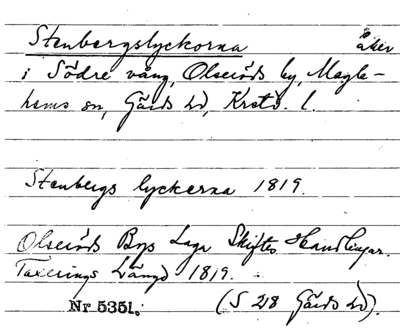 Stenbergslyckorna åker
i Södre vång, Olseröds by, Magle-
hems sn, Gärds hd, Krstd. l.
Stenbergs lyckerna 1819.
Olseröds Bys Laga Skiftes Handlingar.
Taxerings Längd 1819.
Nr 5351. (S 218 Gärds hd).